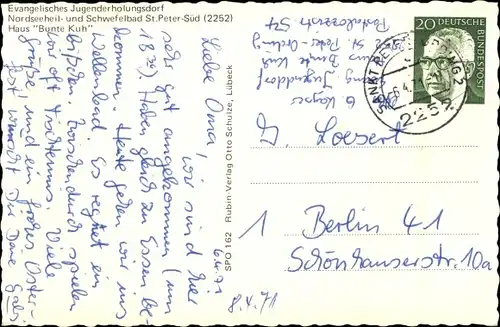 Evangelisches Jugenderholungsdorf
Nordseeheil- und Schwefelbad St.Peter-Süd (2252)
Haus "Bunte Kuh"
6.4.71
Liebe Oma! Wir sind hier
sehr gut angekommen (um
Haben gleich zu Essen be-
kommen. Heute gehen wir ins
Wellenbad. Es regnet ein
bißchen. Zwischendurch spielen
wir oft Viele
Grüße und ein frohes Oster-
fest wünscht Dir Deine Gabi
SPO 162 Rubin-Verlag Otto Schulze, Lübeck
Jugenddorf
Bunte Kuh
2252 St. Peter-Ording
20 DEUTSCHE BUNDESPOST
SANKT PETER
2252
Loesert
1 Berlin 41
Schönhauserstr. 10a
8.4.71